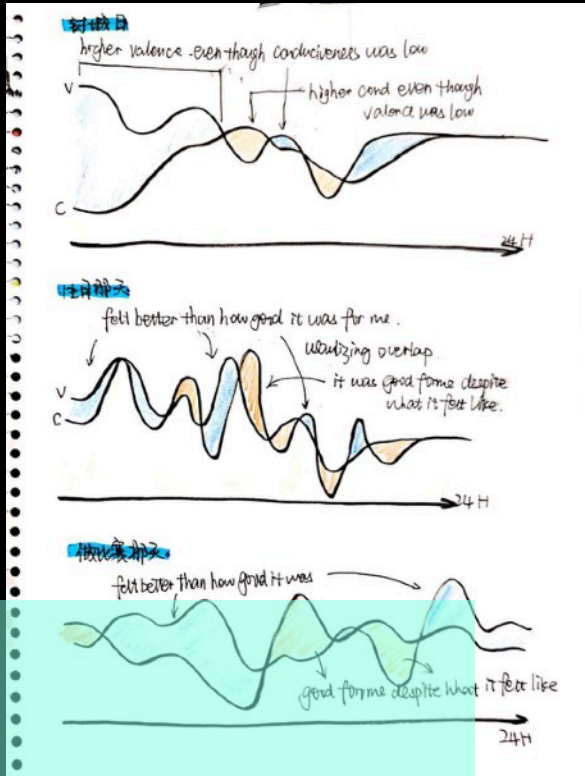 higher valence even though conduciveness was low
V
higher cond even though
valence was low
C
24H
生日那天
felt better than how good it was for me.
overlap
it was good for me despite
what it felt like.
V
C
24H
做比赛那天
felt better than how good it was
good for me despite what it felt like
24H